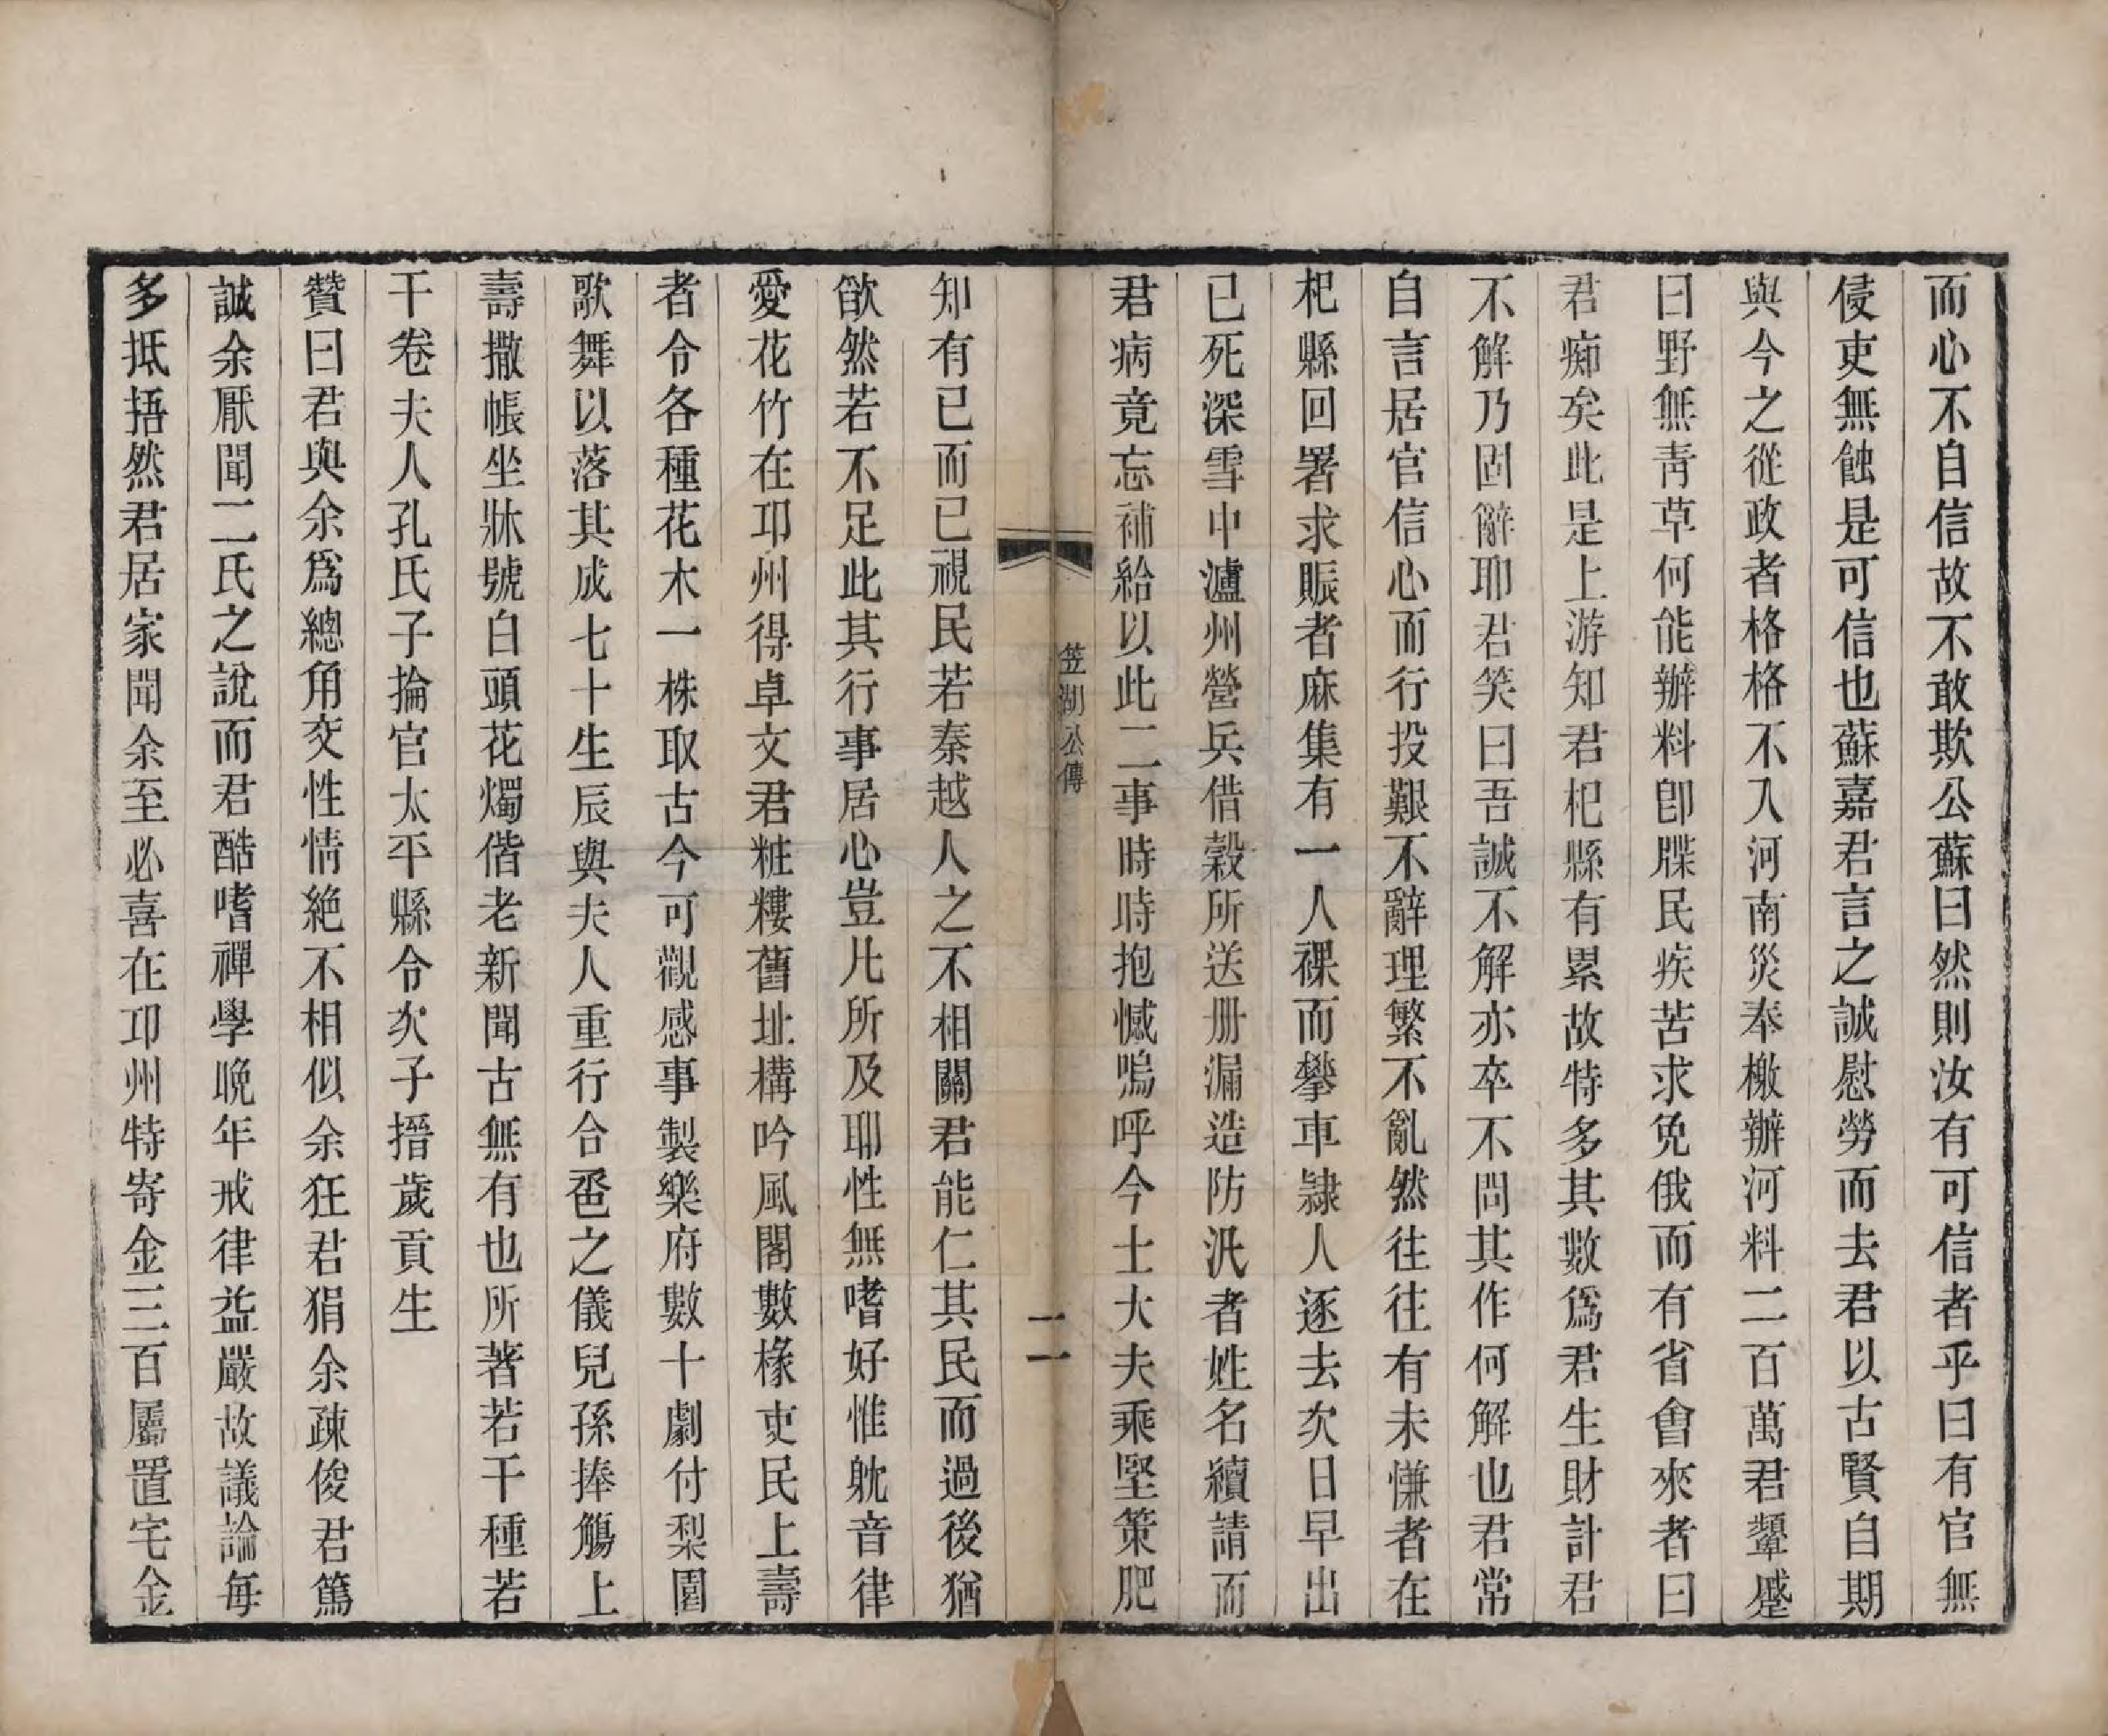 而心不自信故不敢欺公蘇曰然則汝有可信者乎曰有官無
侵吏無蝕是可信也蘇嘉君言之誠慰勞而去君以古賢自期
與今之從政者格格不入河南災奉檄辦河料二百萬君顰蹙
曰野無靑草何能辦料卽牒民疾苦求免俄而有省會來者曰
君痴矣此是上游知君杞縣有累故特多其數爲君生財計君
不解乃固辭耶君笑曰吾誠不解亦卒不問其作何解也君常
自言居官信心而行投艱不辭理繁不亂然往往有未慊者在
杞縣回署求賑者麻集有一人裸而攀車隷人逐去次日早出
已死深雪中瀘州營兵借穀所送册漏造防汛者姓名續請而
君病竟忘補給以此二事時時抱憾嗚呼今士大夫乘堅策肥
笠湖公傳
二
知有已而已視民若秦越人之不相關君能仁其民而過後猶
歉然若不足此其行事居心豈凡所及耶性無嗜好惟躭音律
愛花竹在邛州得卓文君粧樓舊址構吟風閣數椽吏民上壽
者令各種花木一株取古今可觀感事製樂府數十劇付梨園
歌舞以落其成七十生辰與夫人重行合巹之儀兒孫捧觴上
壽撒帳坐牀號白頭花燭偕老新聞古無有也所著若干種若
干卷夫人孔氏子掄官太平縣令次子搢歲貢生
贊曰君與余爲總角交性情絕不相似余狂君狷余疎俊君篤
誠余厭聞二氏之說而君酷嗜禪學晚年戒律益嚴故議論每
多抵捂然君居家聞余至必喜在邛州特寄金三百屬置宅金